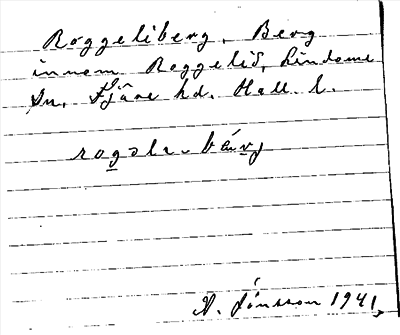 Roggeliberg, Berg
innom Roggelid, Lindome
Sn, Fjäre hd. Hall. l.
rogəla-bærj
A. Jónsson 1941,